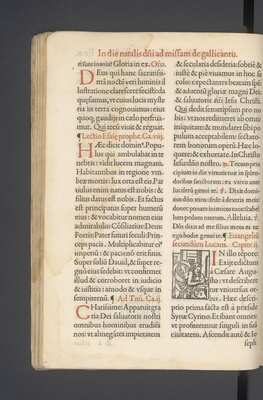 In die natalis dñi ad missam de gallicantu.
Gloria in ex. Oro.
Deus qui hanc sacratissi
mã noctẽ veri luminis il
lustratione clarescere fecisti: da
quęsumus, vt cuius lucis myste
ria in terra cognouimus: eius
quoq; gaudijs in cęlo perfrua-
mur. Qui tecũ viuit & regnat.
Lectio Esaię prophę. Ca. ix.
Hæc dicit dominº. Popu-
lus qui ambulabat in te
nebris: vidit lucem magnam.
Habitantibus in regione vm-
bræ mortis: lux orta est eis. Par
uulus enim natus est nobis: &
filius datus est nobis. Et factus
est principatus super humerũ
eius: & vocabitur nomen eius
admirabilis Cõsiliarius: Deus
Fortis: Pater futuri seculi: Prin-
ceps pacis. Multiplicabitur eiº
imperiũ: & pacis nõ erit finis.
Super soliũ Dauid, & super re-
gnũ eius sedebit: vt confirmet
illud & corroboret in iudicio
& iusticia: amodo & vsq; in
sempiternũ. Ad Titũ. Ca. ij.
Charissime: Apparuit gra
tia Dei saluatoris nostri
omnibus hominibus: erudiẽs
nos: vt abnegantes impietatẽ
& secularia desideria: sobrie &
iuste & pie viuamus in hoc se
culo: expectantes beatam spem
& aduentũ glorię magni Dei
& saluatoris nr̃i Iesu Christi.
Qui dedit semetipsum pro no
bis: vt nos redimeret ab omni
iniquitate & mundaret sibi po
pulum acceptabilem: sectato-
rem bonorum operũ. Hæc lo-
quere & exhortare: In Christo
Iesu dño nostro. Tecum prin
cipium in die virtutis tuę: in splen-
doribus sanctorum: ex vtero ante
luciferũ genui te. Dixit domi-
nus domino meo, sede a dextris
meis: donec ponam inimicos tuos sca-
bellum pedum tuorum. Alleluia.
Dñs dixit ad me filius meus es tu:
ego hodie genui te. Euangeliũ
secundum Lucam. Capite. ij.
In illo tẽpore:
Exijt edictum
a Cæsare Augu-
sto: vt describere
tur vniuersus or-
bis. Hæc descri-
ptio prima facta est a præside
Syriæ Cyrino. Et ibant omnes
vt profiterentur singuli in suã
ciuitatem. Ascendit autẽ & Io
seph